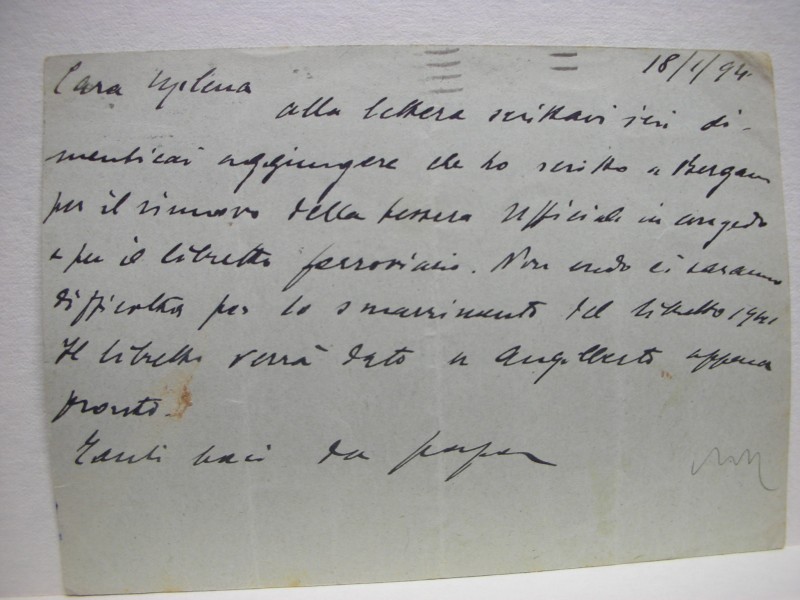 18/1/94
Cara
alla lettera scrittavi ieri di-
menticai aggiungere che ho scritto a Bergam
per il rinnovo della tessera Ufficiali in congedo
e per il libretto ferroviario. Non credo ci saranno
difficoltà per lo smarrimento del libretto 1941
Il libretto verrà dato a Angilberto appena
pronto.
Tanti baci da papà